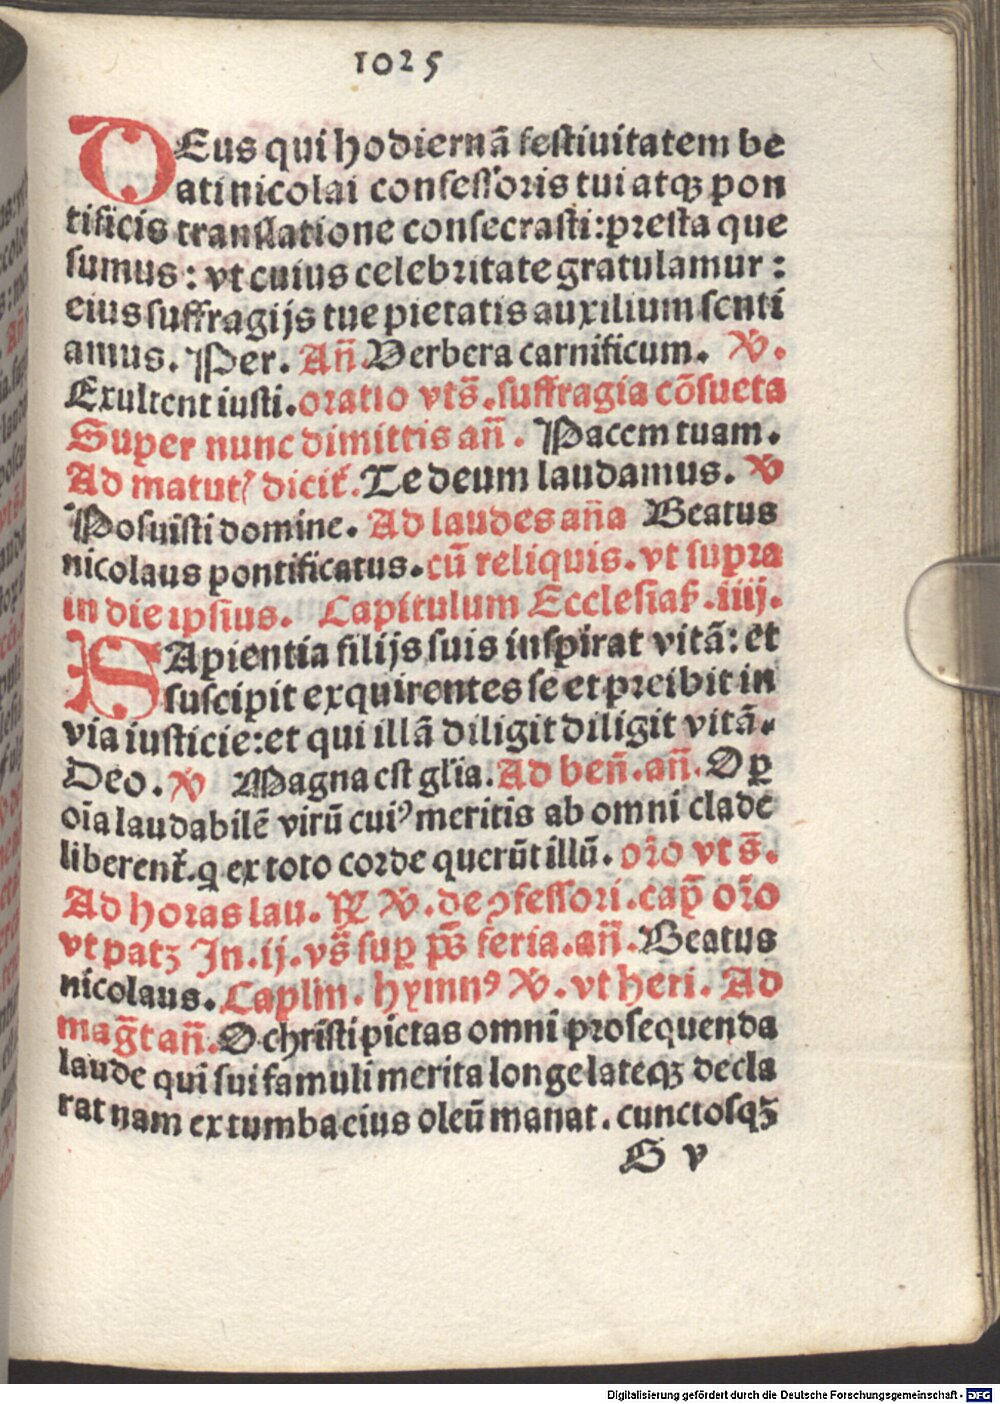 1025
DEus qui hodiernā festiuitatem be
ati nicolai confessoris tui atqꝫ pon
tificis translatione consecrasti: presta que
sumus: vt cuius celebritate gratulamur:
eius suffragijs tue pietatis auxilium senti
amus. Per. Añ. Verbera carnificum. ℣.
Exultent iusti. oratio vts̄. suffragia cōsueta
Super nunc dimittis añ. Pacem tuam.
Ad matut᷑ dicit᷑. Te deum laudamus. ℣
Posuisti domine. Ad laudes aña Beatus
nicolaus pontificatus. cū reliquis. vt supra
in die ipsius. Capitulum Ecclesiaſ. iiij.
SApientia filijs suis inspirat vitā: et
suscipit exquirentes se et preibit in
via iusticie: et qui illā diligit diligit vitā.
Deo. ℣ Magna est gl̄ia. Ad ben̄. añ. Oꝑ
oīa laudabilē virū cuiꝰ meritis ab omni clade
liberent᷑. q ex toto corde querūt illū. or̄o vt s̄.
Ad horas lau. ꝶ ℣. de ꝯfessori. cap̄ or̄o
vt patꝫ In. ij. vs̄ suꝑ ps̄ feria. añ. Beatus
nicolaus. Caplm̄. hymnꝰ ℣. vt heri. Ad
mag̅t añ. O christi pietas omni prosequenda
laude qui sui famuli merita longe lateqꝫ decla
rat nam ex tumba eius oleū manat. cunctosqꝫ
S v
Digitalisierung gefördert durch die Deutsche Forschungsgemeinschaft - DFG